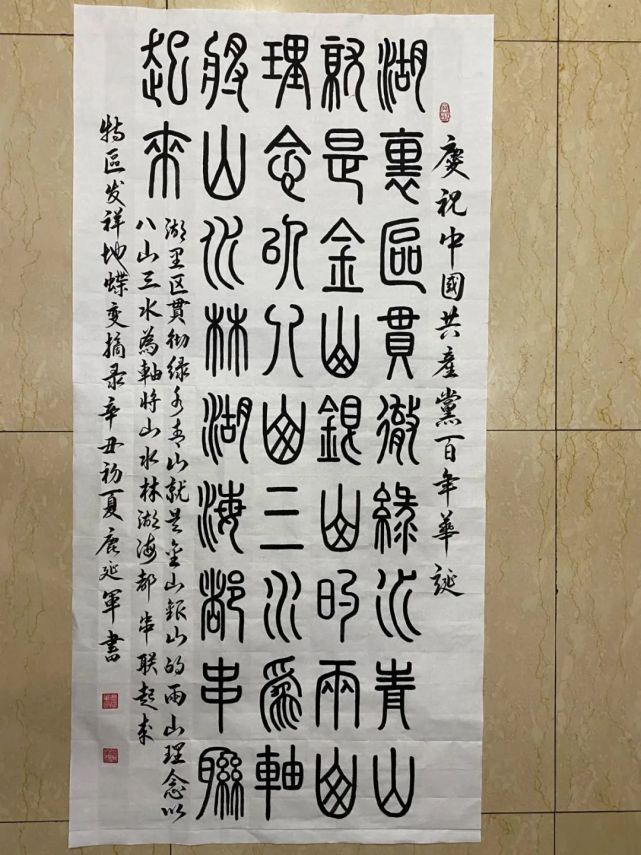 慶祝中國共產黨百年華誕
湖裏區貫徹綠水青山
就是金山銀山的兩山
理念以八山三水爲軸
將山水林湖海都串聯
起來
湖里区貫彻绿水青山就是金山銀山的兩山理念以
八山三水為軸將山水林湖海都串联起来
特區发祥地蝶变摘录辛丑初夏延軍書